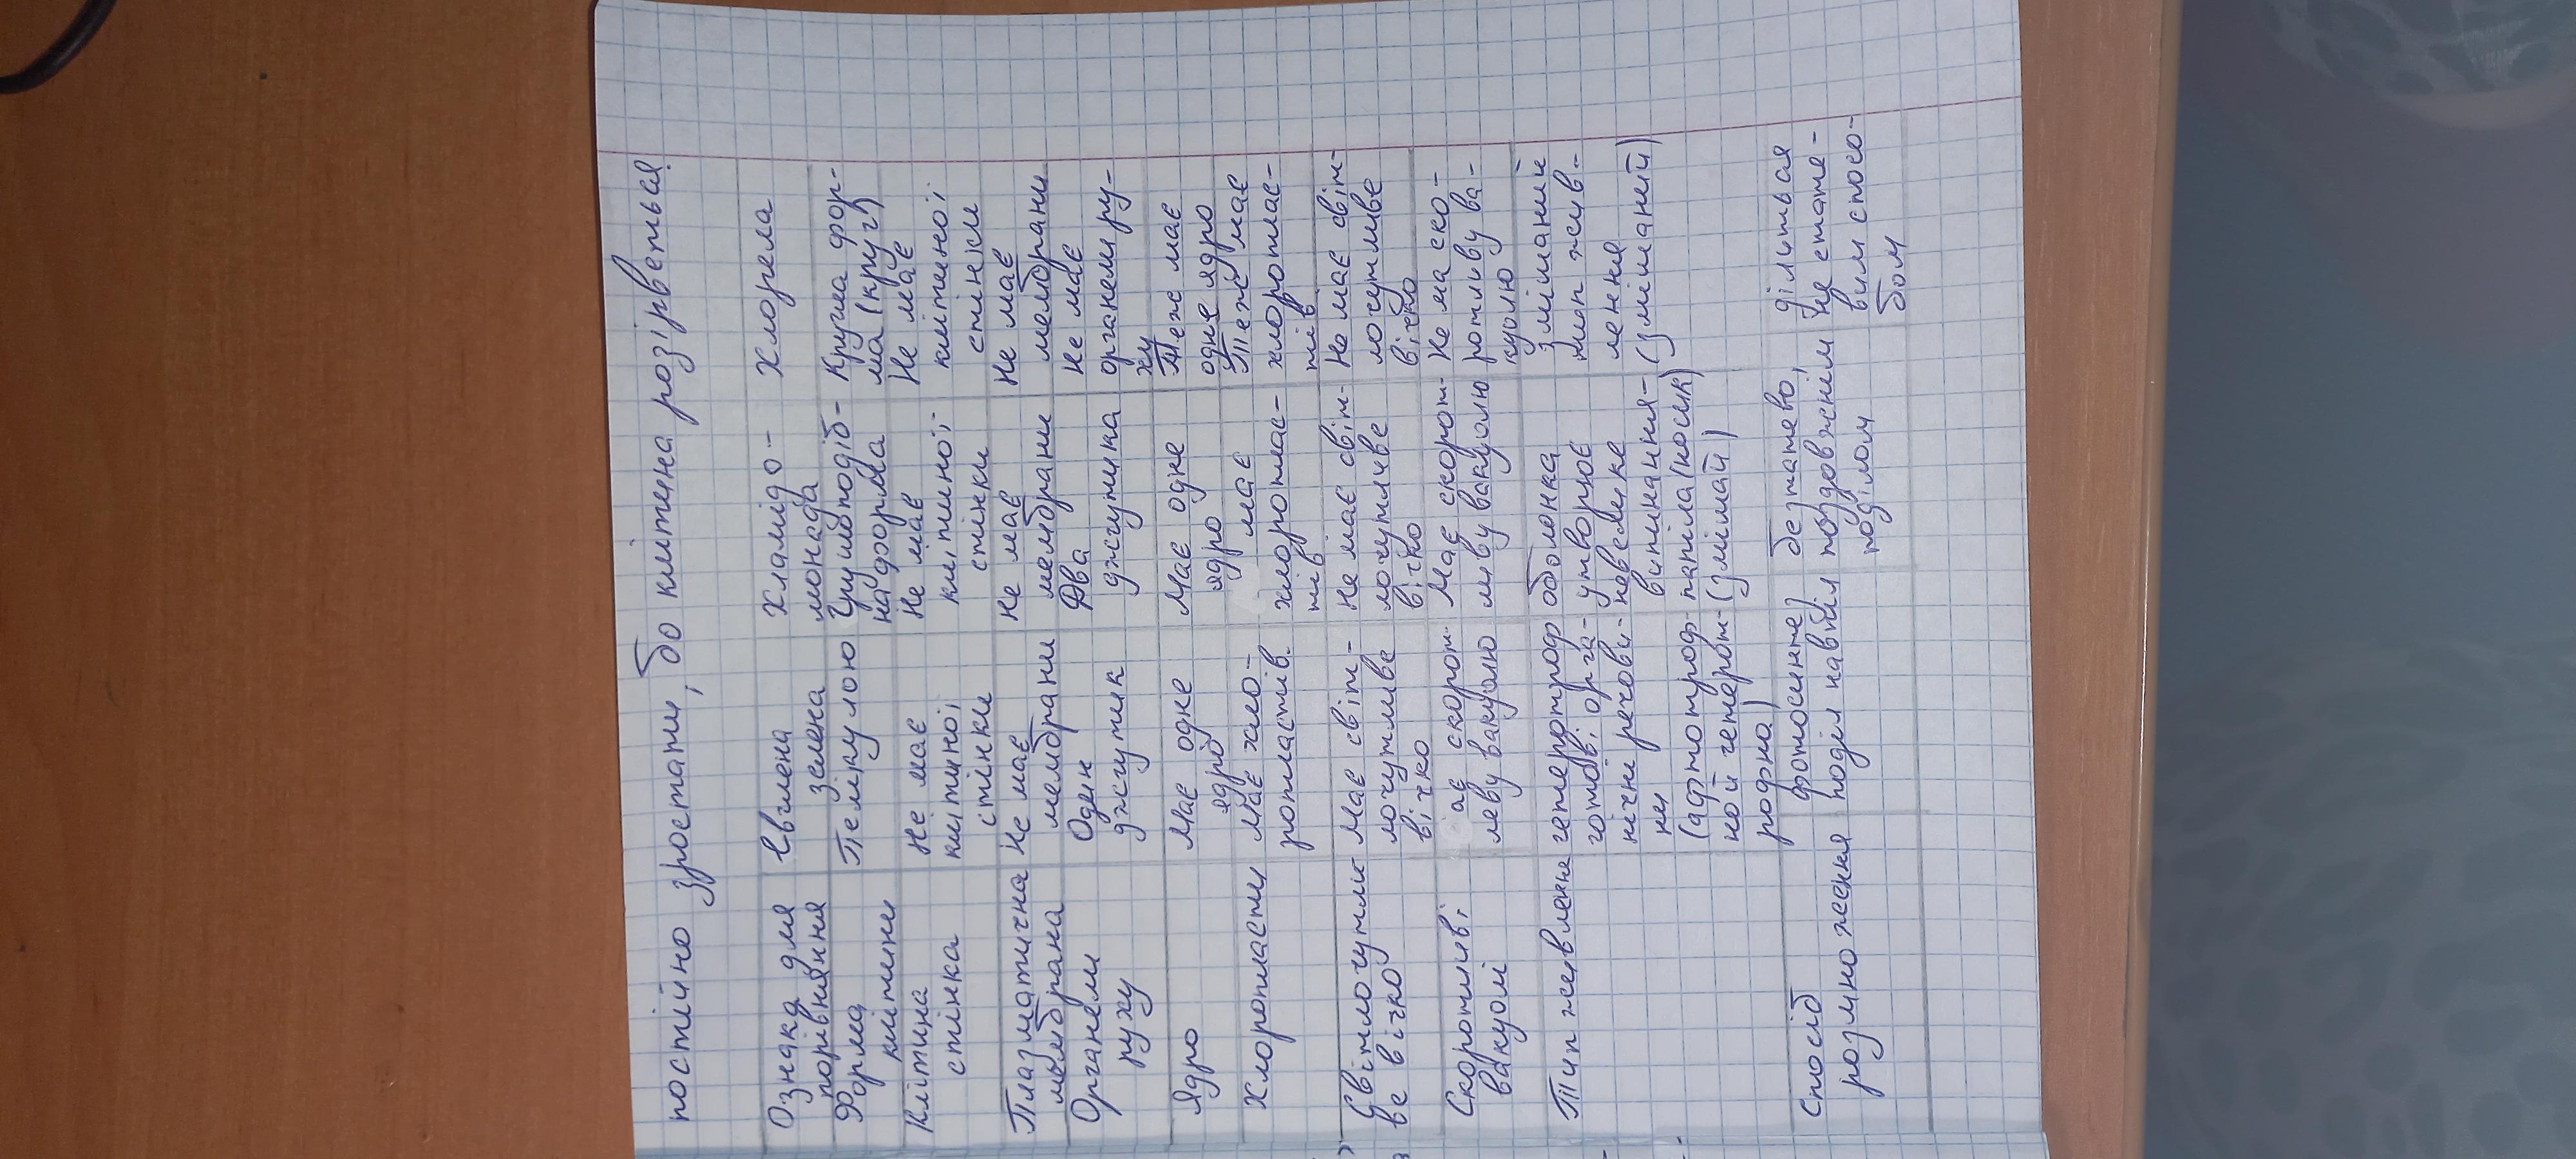 постійно зростати, бо клітина розірветься
Ознака для порівняння
Евглена зелена
Хламідо-
монада
Хлорела
Форма клітини
Пелікулою
Грушоподіб-
на форма
Кругла фор-
ма (круг)
Клітина стінка
Не має
клітиної
стінки
Не має
клітиної
стінки
Не має
клітиної
стінки
Плазматична
мембрана
Не має
мембрани
Не має
мембрани
Не має
мембрани
Органели
руху
Оден
джгутик
Два
джгутика
Не має
органел ру-
ху
Ядро
Має одне
ядро
Має одне
ядро
Теж має
одне ядро
Хлоропласти
Має хло-
ропластів
має
хлороплас-
тів
Теж має
хлороплас-
тів
Світлочутли
ве вічко
Має світ-
лочутливе
вічко
Не має світ-
лочутливе
вічко
Не має світ-
лочутливе
вічко
Скоротливі
вакуолі
ає скорот-
леву вакуолю
Має скорот-
ливу вакуолю
Не ма ско-
ротливу ва-
куолю
Тип живлення
гетеротроф
готові орга-
нічні речови-
ни
(афтотроф-
но й гетерот-
рофна)
оболонка
утворює
невелике
випинання-
папіла (носик)
(змішай)
змішаний
тип жив-
лення
(змішаний)
Спосіб
розмноження
фотосинтез
поділ навпіл
безтатево,
поздовжнім
поділом
ділиться
не стате-
вим спосо-
бом